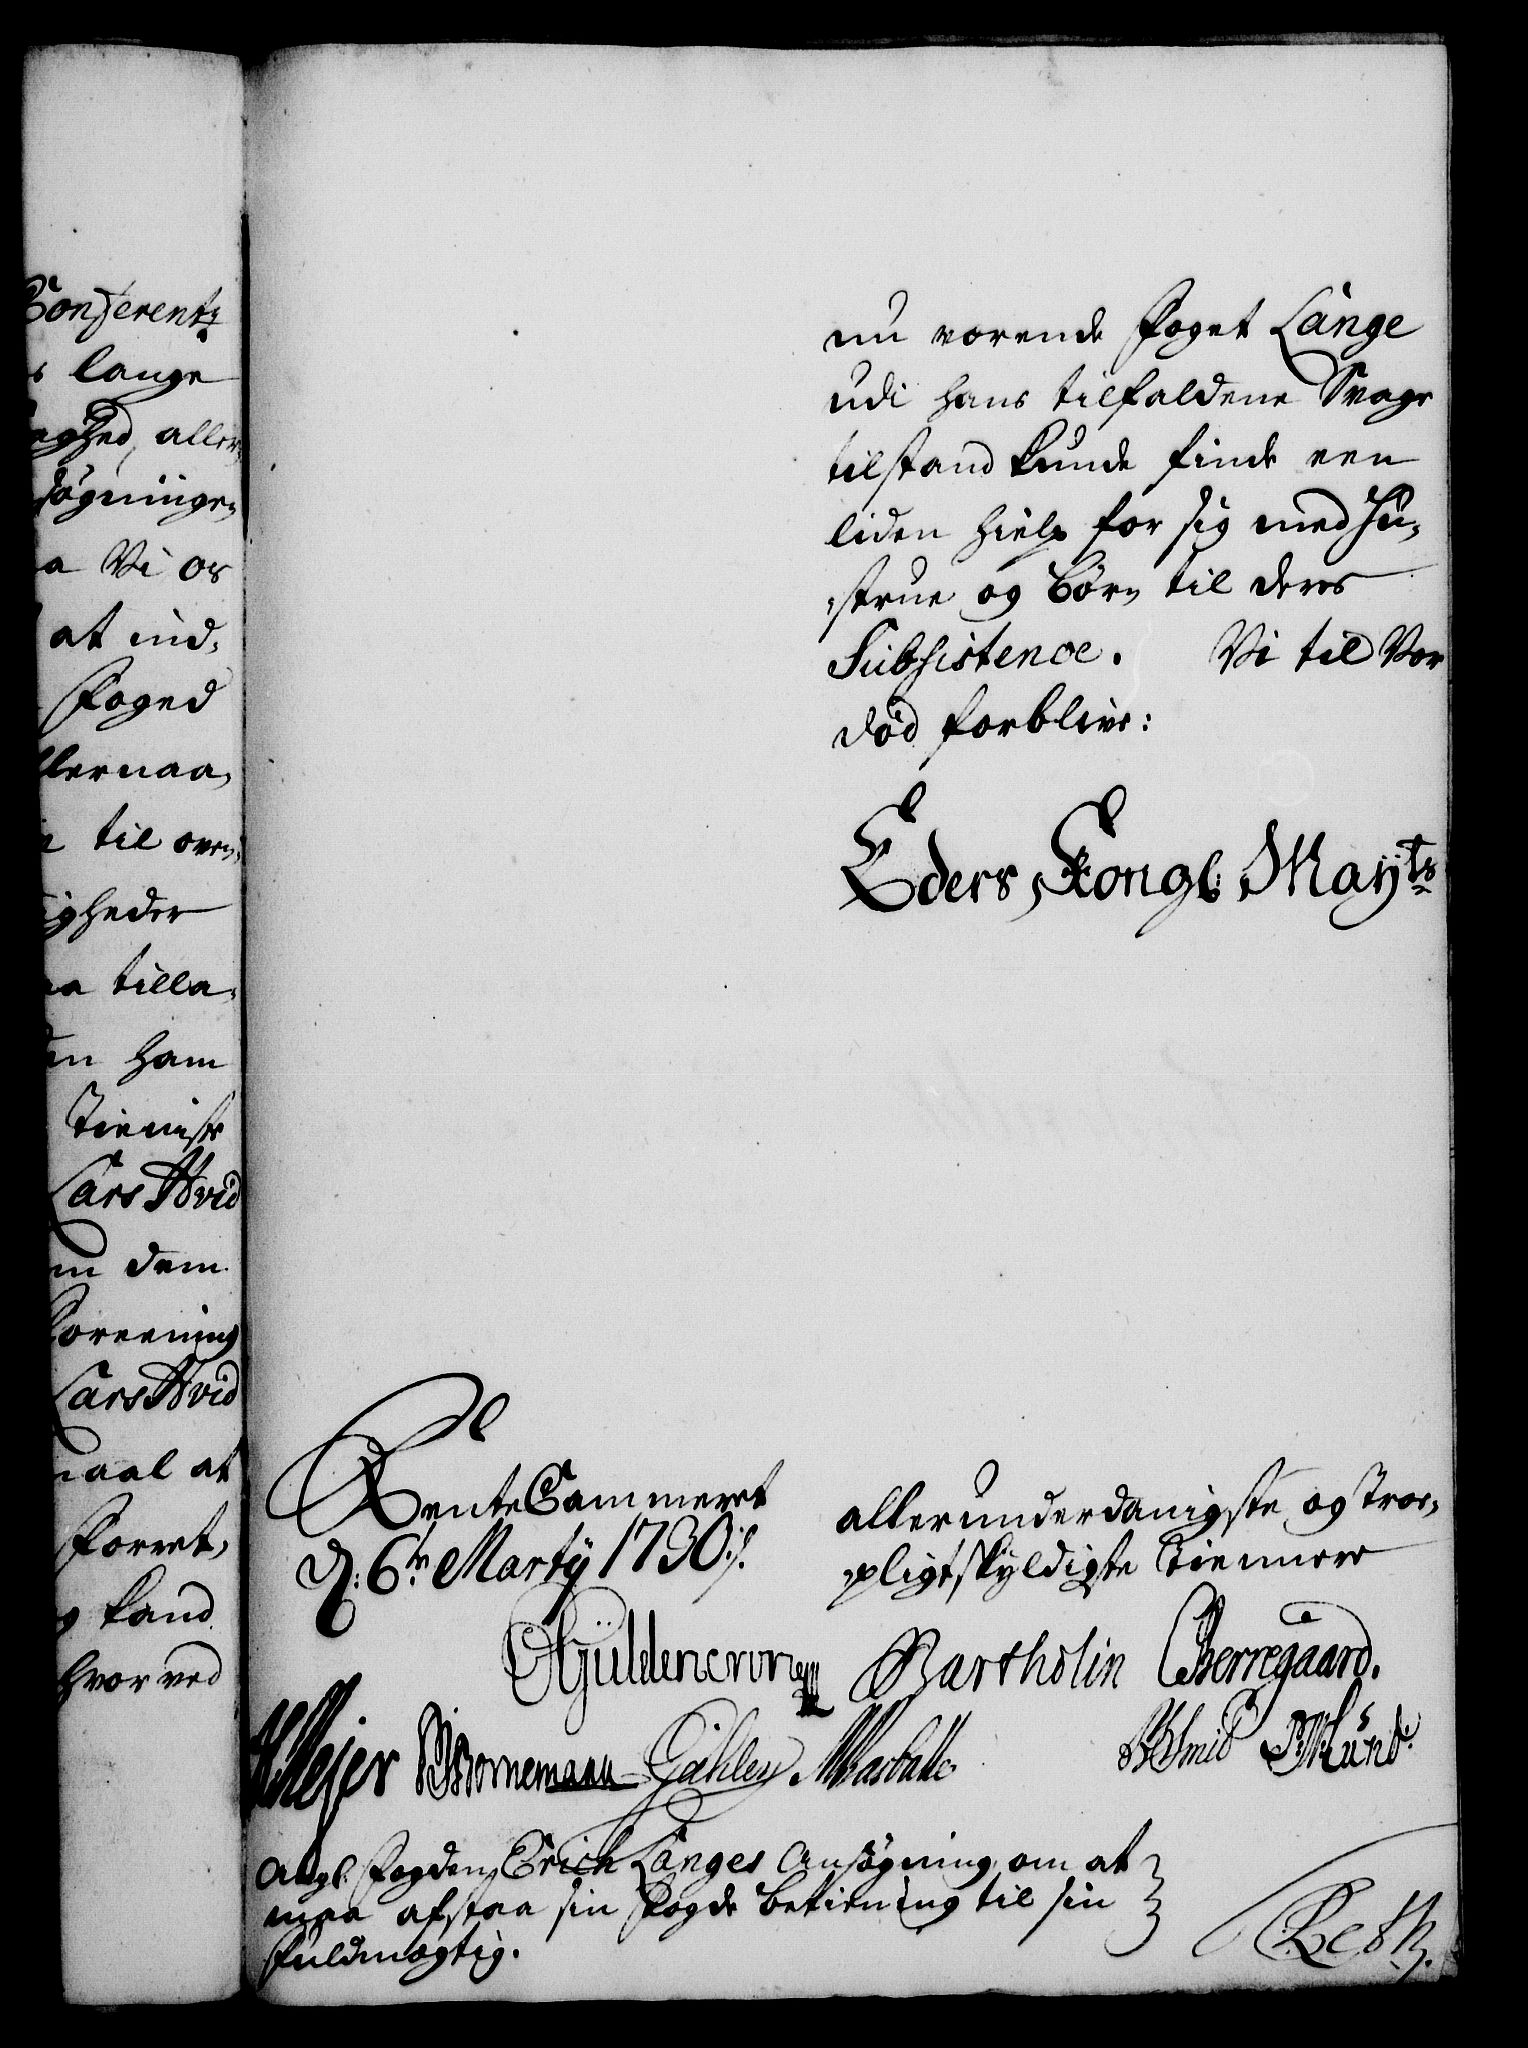 Conferentz
lange
eghed, aller,
søgninger
a Vi os
at ind,
Foged
llernaa,
til oven,
igheder
aa tilla,
en ham
Tieniste
Lars Hvid
m dem
Foreening
Lars Hvid
maal at
Forret,
kand
hvorved
nu værende Foget Lange
udi hans tilfaldene Svage
tilstand kunde finde een
liden hielp for sig med Hu,
,strue og børn til deres
Subsistence. Vi til Vor
død forblive:
Eders Kongl: Mayts
RenteCammeret
d: 6te Marty 1730 ./.
allerunderdanigste og troe,
pligtskyldigste Tiennere
Güldencrone Bartholin CBerregaard.
Mejer Bornemann Gähler
Fogden Erich Langes Ansøgning om at
maa afstaa sin Fogde betiening til sin
Fuldmægtig.